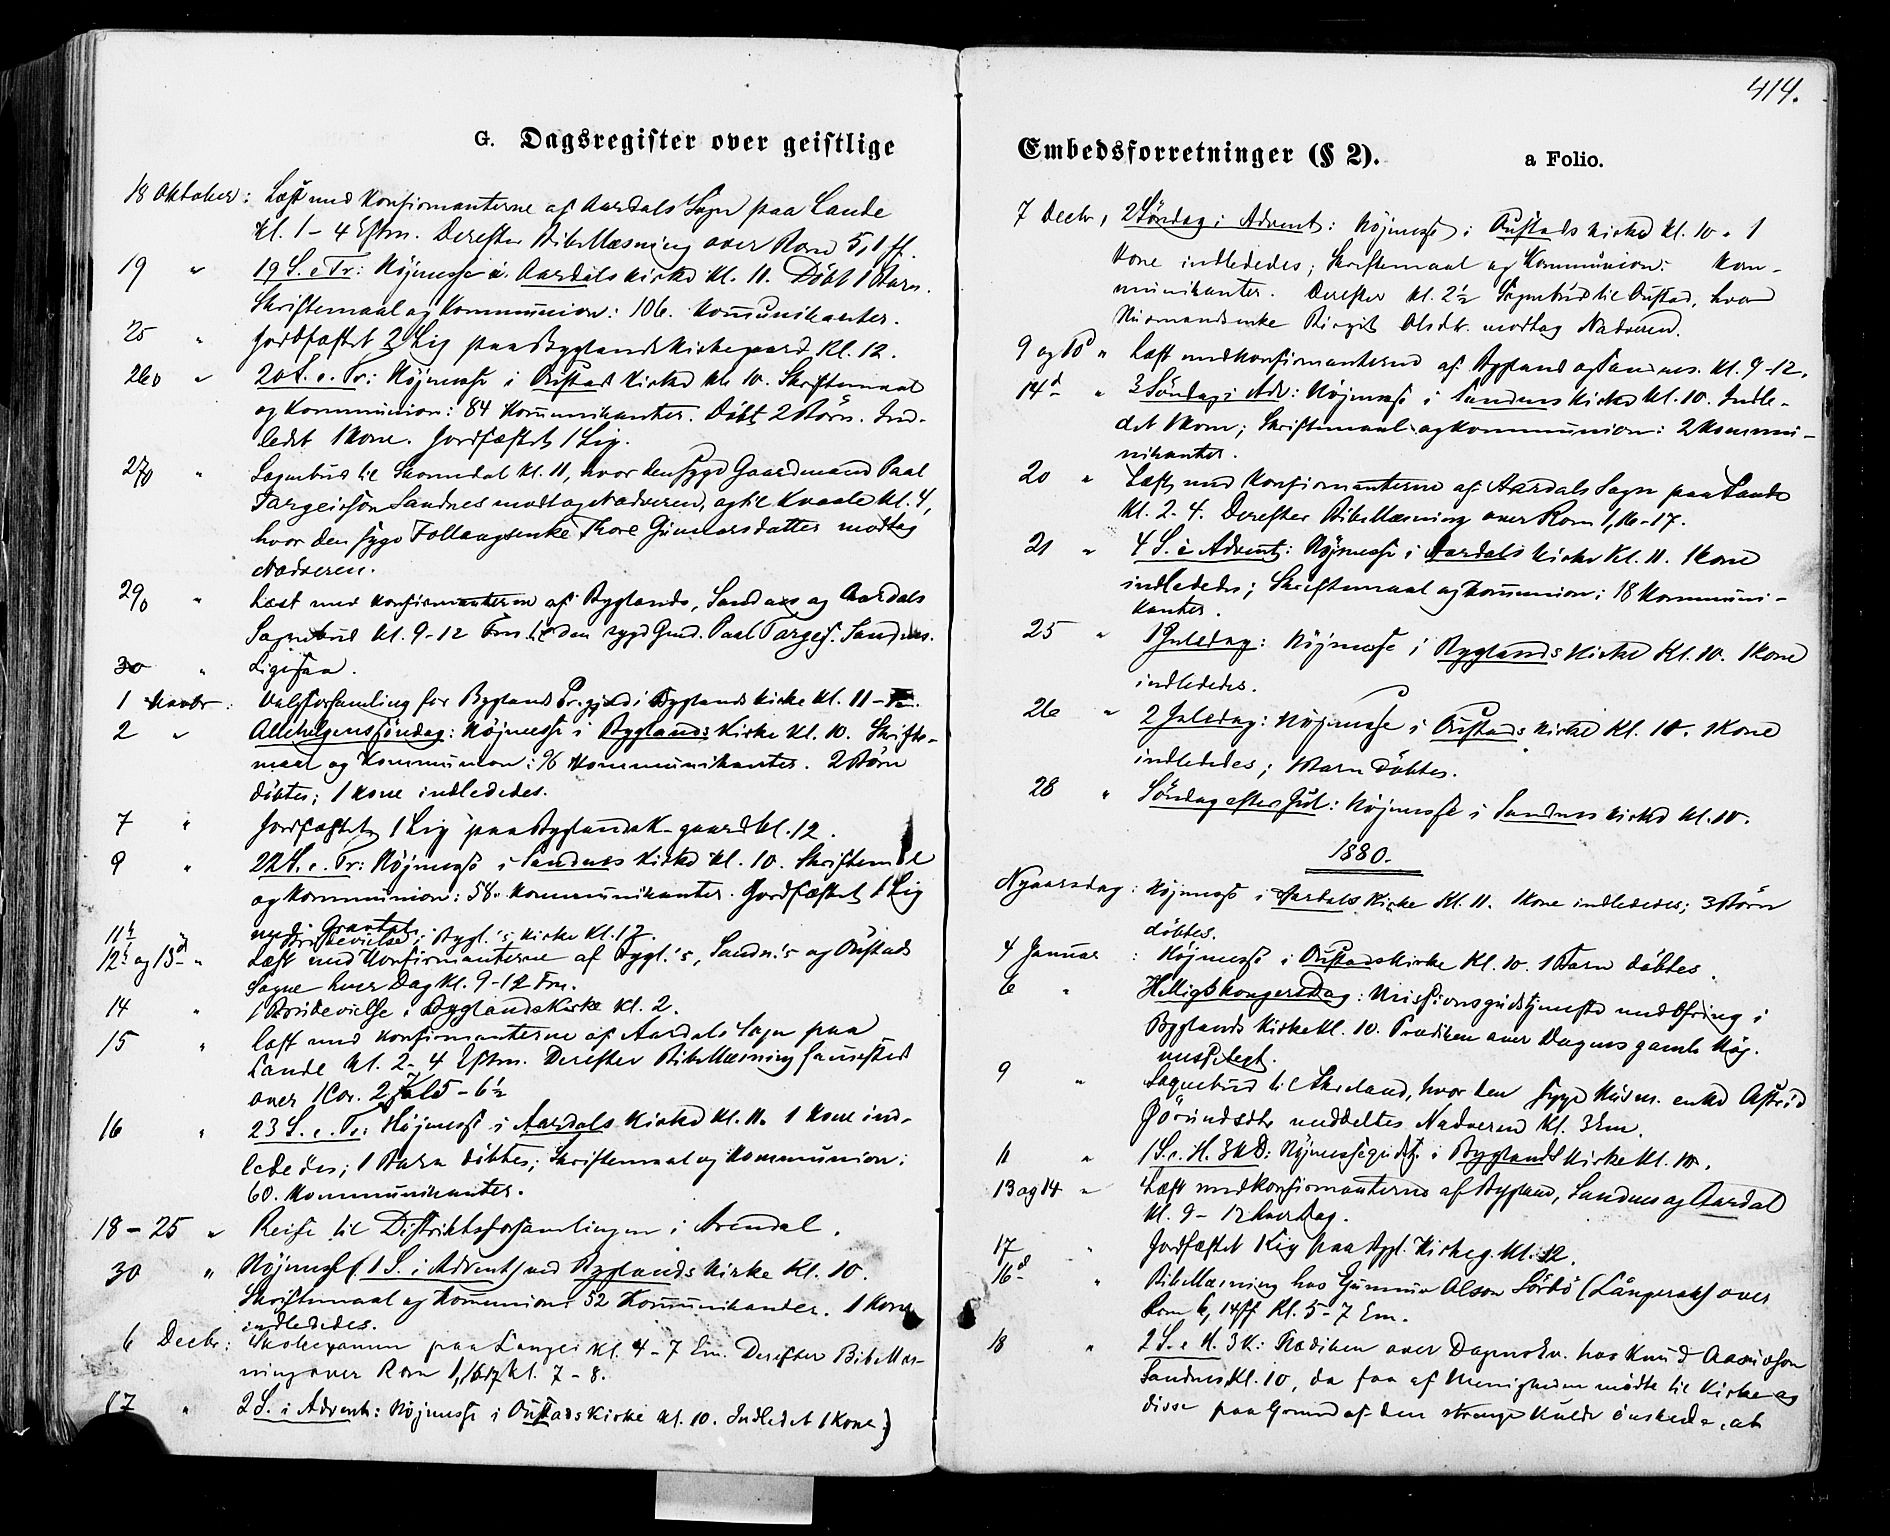 G. Dagsregister over geistlige
18 Oktober: Læst med Konfirmanterne af Aardals Sogn paa Lande
Kl. 1-4 Eftm. Derefter Bibellæsning over Rom 5,1 ff.
19 " 19 S. e. Tr: Højmesse i Aardals Kirke Kl. 11. Døbt 1 Barn.
Skriftemaal og Kommunion: 106. Kommunikanter.
25 " Jordfæstet 2 Lig paa Byglands Kirkegaard Kl. 12.
26 " 20 S. e. Tr: Højmesse i Ōustad Kirke Kl. 10. Skriftemaal
og Kommunion: 84 Kommunikanter. Døbt 2 Børn. Ind-
ledet 1 Kone. Jordfæstet 1 Lig.
27 " Sognebud til Skomedal Kl. 11, hvor den syge Gaardmand Paal
Targeisøn Sandnes modtog Nadveren, og til Kvaale Kl. 4,
hvor den syge Follaugsenke Thore Gunnarsdatter modtog
Nadveren.
29 " Læst med Konfirmanterne af Byglands, Sandnes og Aardals
Sognebud Kl. 9-12 Fm. til den syge Gmd. Paal Targeis. Sandnes.
30 " Ligesaa.
1 Novbr: Valgforsamling for Byglands Pr.gjeld i Byglands Kirke Kl. 11
2 " Allehelgenssøndag: Højmesse i Byglands Kirke Kl. 10. Skrifte-
maal og Kommunion: 96 Kommunikanter. 2 Børn
døbtes; 1 Kone indlededes.
7 " Jordfæstet 1 Lig paa Byglands K-gaard Kl. 12.
9 " 22 S. e. Tr: Højmesse i Sandnes Kirke Kl. 10. Skriftemaal
og Kommunion: 58. Kommunikanter. Jordfæstet 1 Lig
med Gravtale.
11te " Brudevielse i Bygl.'s Kirke Kl. 12.
12te og 13d " Læst med Konfirmanterne af Bygl.'s, Sandn.'s og Oustads
Sogne hver Dag Kl. 9-12 Fm.
14 " 1 Brudevielse i Byglands Kirke Kl. 2.
15 " læst med Konfirmanterne af Aardals Sogn paa
Lande Kl. 2-4 Eftm. Derefter Bibellæsning sammesteds
over 1 Cor. 2 Kl. 5-6½
16 " 23 S. e. Tr: Højmesse i Aardals Kirke Kl. 11. 1 Kone ind-
lededes; 1 Barn døbtes; Skriftemaal og Kommunion:
60. Kommunikanter.
18-25 " Reise til Distriktsforsamlingen i Arendal.
30 " Højmesse (1 S. i Advent) ved Byglands Kirke Kl. 10.
Skriftemaal og Kommunion: 52 Kommunikanter. 1 Kone
indlededes.
6 Decbr: Skoleexamen paa Langei Kl. 4-7 Em. Derefter Bibellæs-
ning over Rom 1, 16-17 Kl. 7-8.
7 " 2 S. i Advent: Højmesse i Oustads Kirke Kl. 10. Indledet 1 Kone.)
414.
Embedsforretninger (§ 2). a Folio.
7 Decbr, 2 Søndag i Advent: Højmesse i Oustads Kirke Kl. 10. 1
Kone indlededes; Skriftemaal og Kommunion: Kom-
munikanter. Derefter Kl. 2½ Sognebud til Oustad, hvor
Husmandsenke Birgit Olsdtr. modtog Nadveren.
9 og 10d " Læst med Konfirmanterne af Bygland og Sandnes. Kl. 9-12.
14d " 3 Søndag i Adv: Højmesse i Sandnes Kirke Kl. 10. Indle-
det 1 Kone; Skriftemaal og Kommunion: 2 Kommu-
nikanter.
20 " Læst med Konfirmanterne af Aardals Sogn paa Lande
Kl. 2-4. Derefter Bibellæsning over Rom 1,16-17.
21 " 4 S. i Advent: Højmesse i Aardals Kirke Kl. 11. 1 Kone
indlededes; Skriftemaal og Kommunion: 18 Kommuni-
kanter.
25 " 1 Juledag: Højmesse i Byglands Kirke Kl. 10. 1 Kone
indlededes.
26 " 2 Juledag: Højmesse i Oustads Kirke Kl. 10. 1 Kone
indlededes; 1 Barn døbtes.
28 " Søndag efter Jul: Højmesse i Sandnes Kirke Kl. 10.
1880.
Nyaarsdag: Højmesse i Aardals Kirke Kl. 11. 1 Kone indlededes; 3 Børn
døbtes.
4 Januar: Højmesse i Oustads Kirke Kl. 10. 1 Barn døbtes.
6 " Hellig 3 Kongersdag: Missionsgudstjeneste med Ofring i
Byglands Kirke Kl. 10. Prædiken over Dagens gamle Høj-
messetext.
9 " Sognebud til Skreland, hvor den syge Husm. enke Astrid
Jörundsdtr meddeltes Nadveren Kl. 3 Em.
11 " 1 S. e. H. 3 K. D: Højmessegudstj. i Byglands Kirke Kl. 10.
13 og 14 " Læst med Konfirmanterne af Bygland, Sandnes og Aardal
Kl. 9-12 hver Dag.
17 " Jordfæstet 1 Lig paa Bygl. Kirkeg. Kl. 12.
16d " Bibellæsning hos Gunnuv Olsøn Sördö (Långerak) over
Rom 6, 14 ff Kl. 5-7 Em.
18 " 2 S. e H. 3 K: Prædiken over Dagens Ev. hos Knud Aasuvsøn
Sandnes, Kl. 10, da faa af Menigheden mødte til Kirke og
disse paa Grund af den strenge Kulde ønskede, at